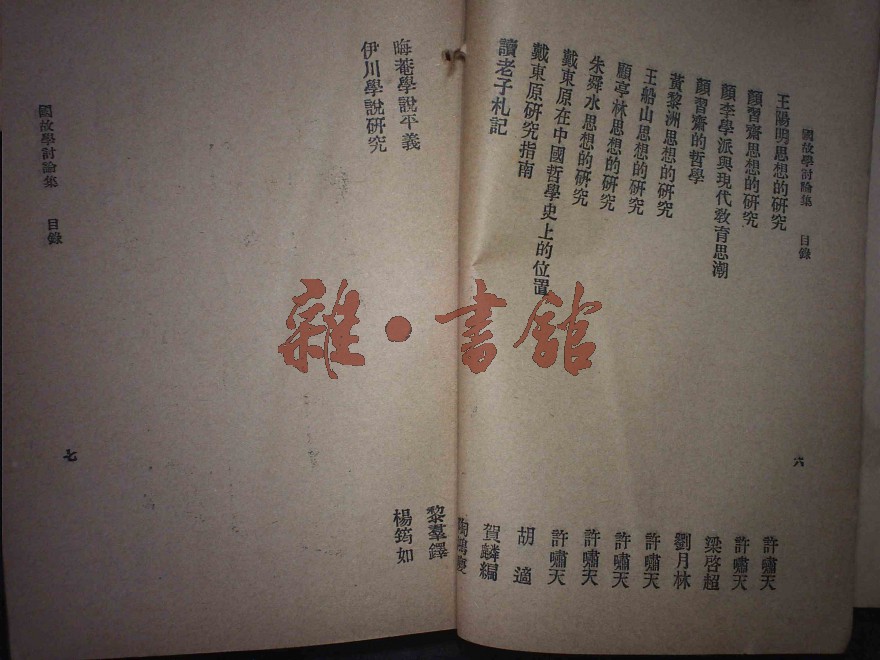 國故學討論集 目錄
六
王陽明思想的研究 許嘯天
顏習齋思想的研究 許嘯天
顏李學派與現代敎育思潮 梁啓超
顏習齋的哲學 劉月林
黃黎洲思想的研究 許嘯天
王船山思想的研究 許嘯天
顧亭林思想的研究 許嘯天
朱舜水思想的研究 許嘯天
戴東原在中國哲學史上的位置 胡適
戴東原研究指南 賀麟編
讀老子札記
晦菴學說平義 黎羣鐸
伊川學說研究 楊筠如
國故學討論集 目錄
七
雜·書館